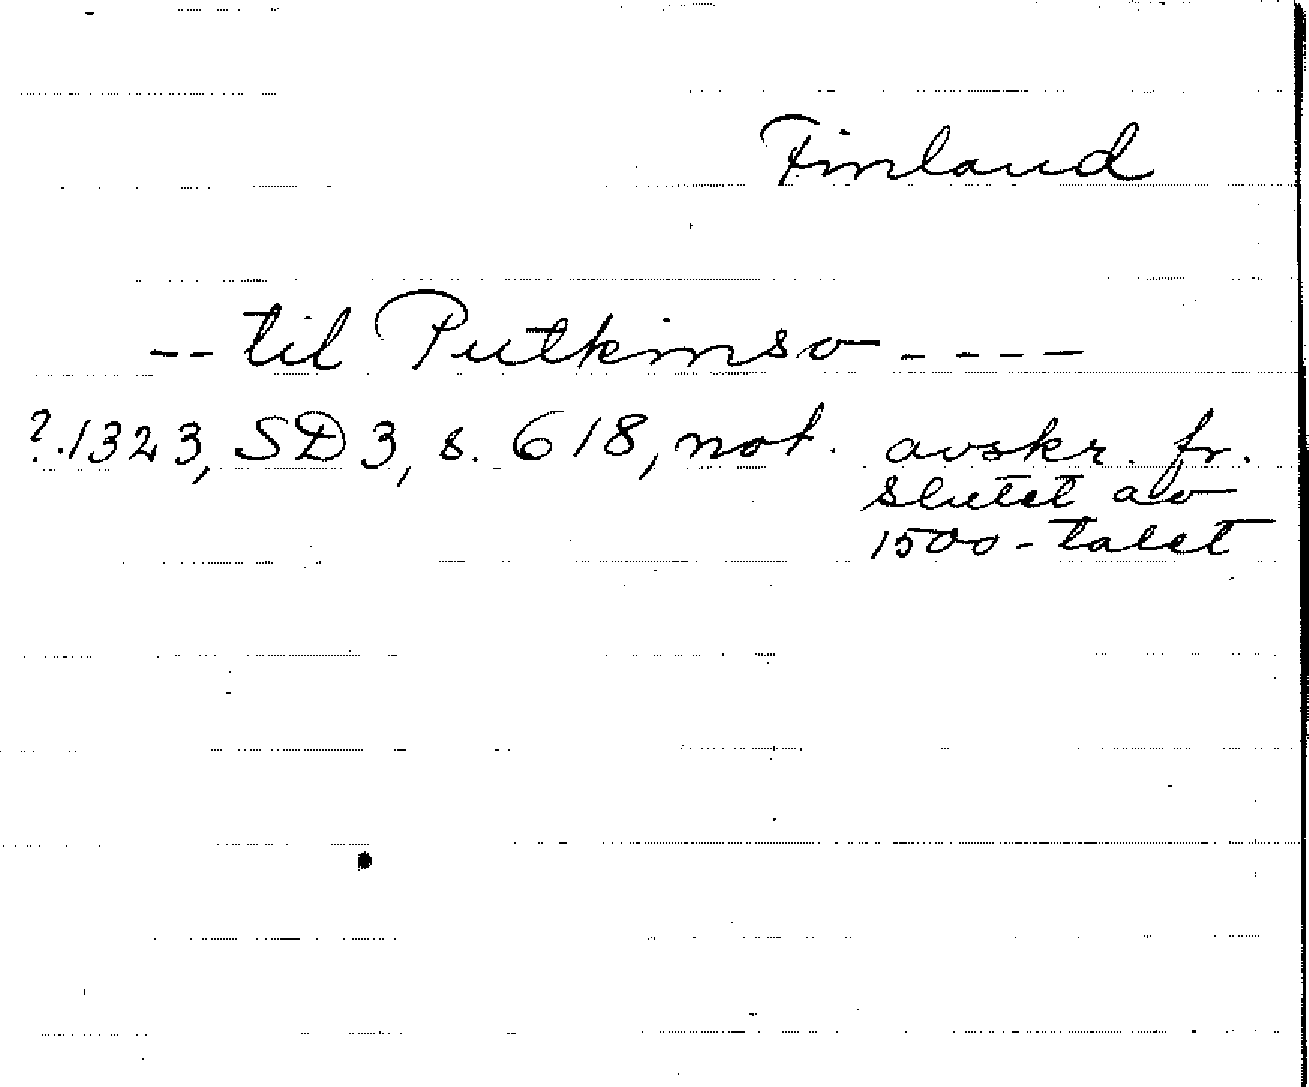 Finland
-- til Putkinso ----
?.1323, SD 3, s. 618, not. avskr. fr.
slutet av
1500-talet